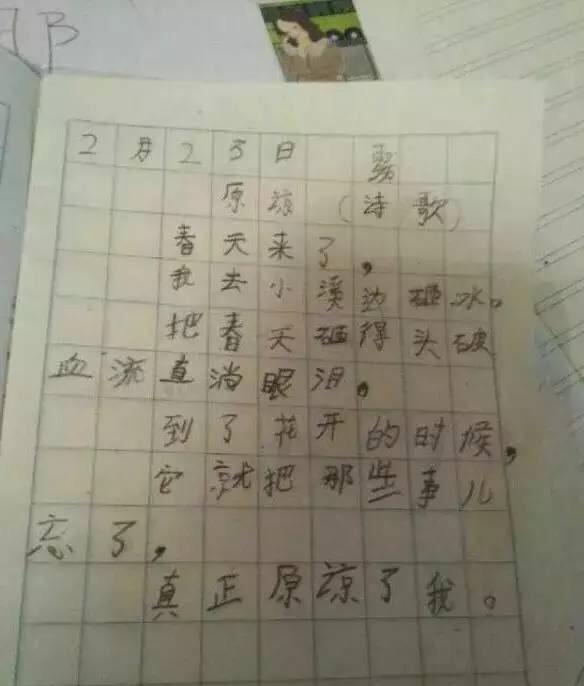 2月25日
原谅（诗歌）
春天来了，
我去小溪边砸冰。
把春天砸得头破
血流直淌眼泪。
到了花开的时候，
它就把那些事儿
忘了，
真正原谅了我。